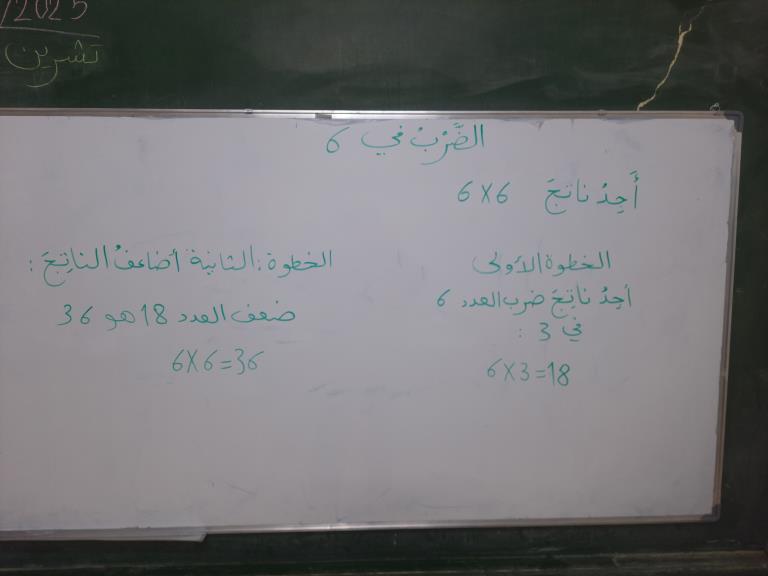 /2025
تشرين
الضَّرْبُ في 6
أَجِدُ ناتجَ 6×6
الخطوة الأولى
أجدُ ناتِجَ ضرب العدد 6
في 3 :
6×3=18
الخطوة: الثانية أضاعفُ الناتِجَ :
ضعف العدد 18 هو 36
6×6=36